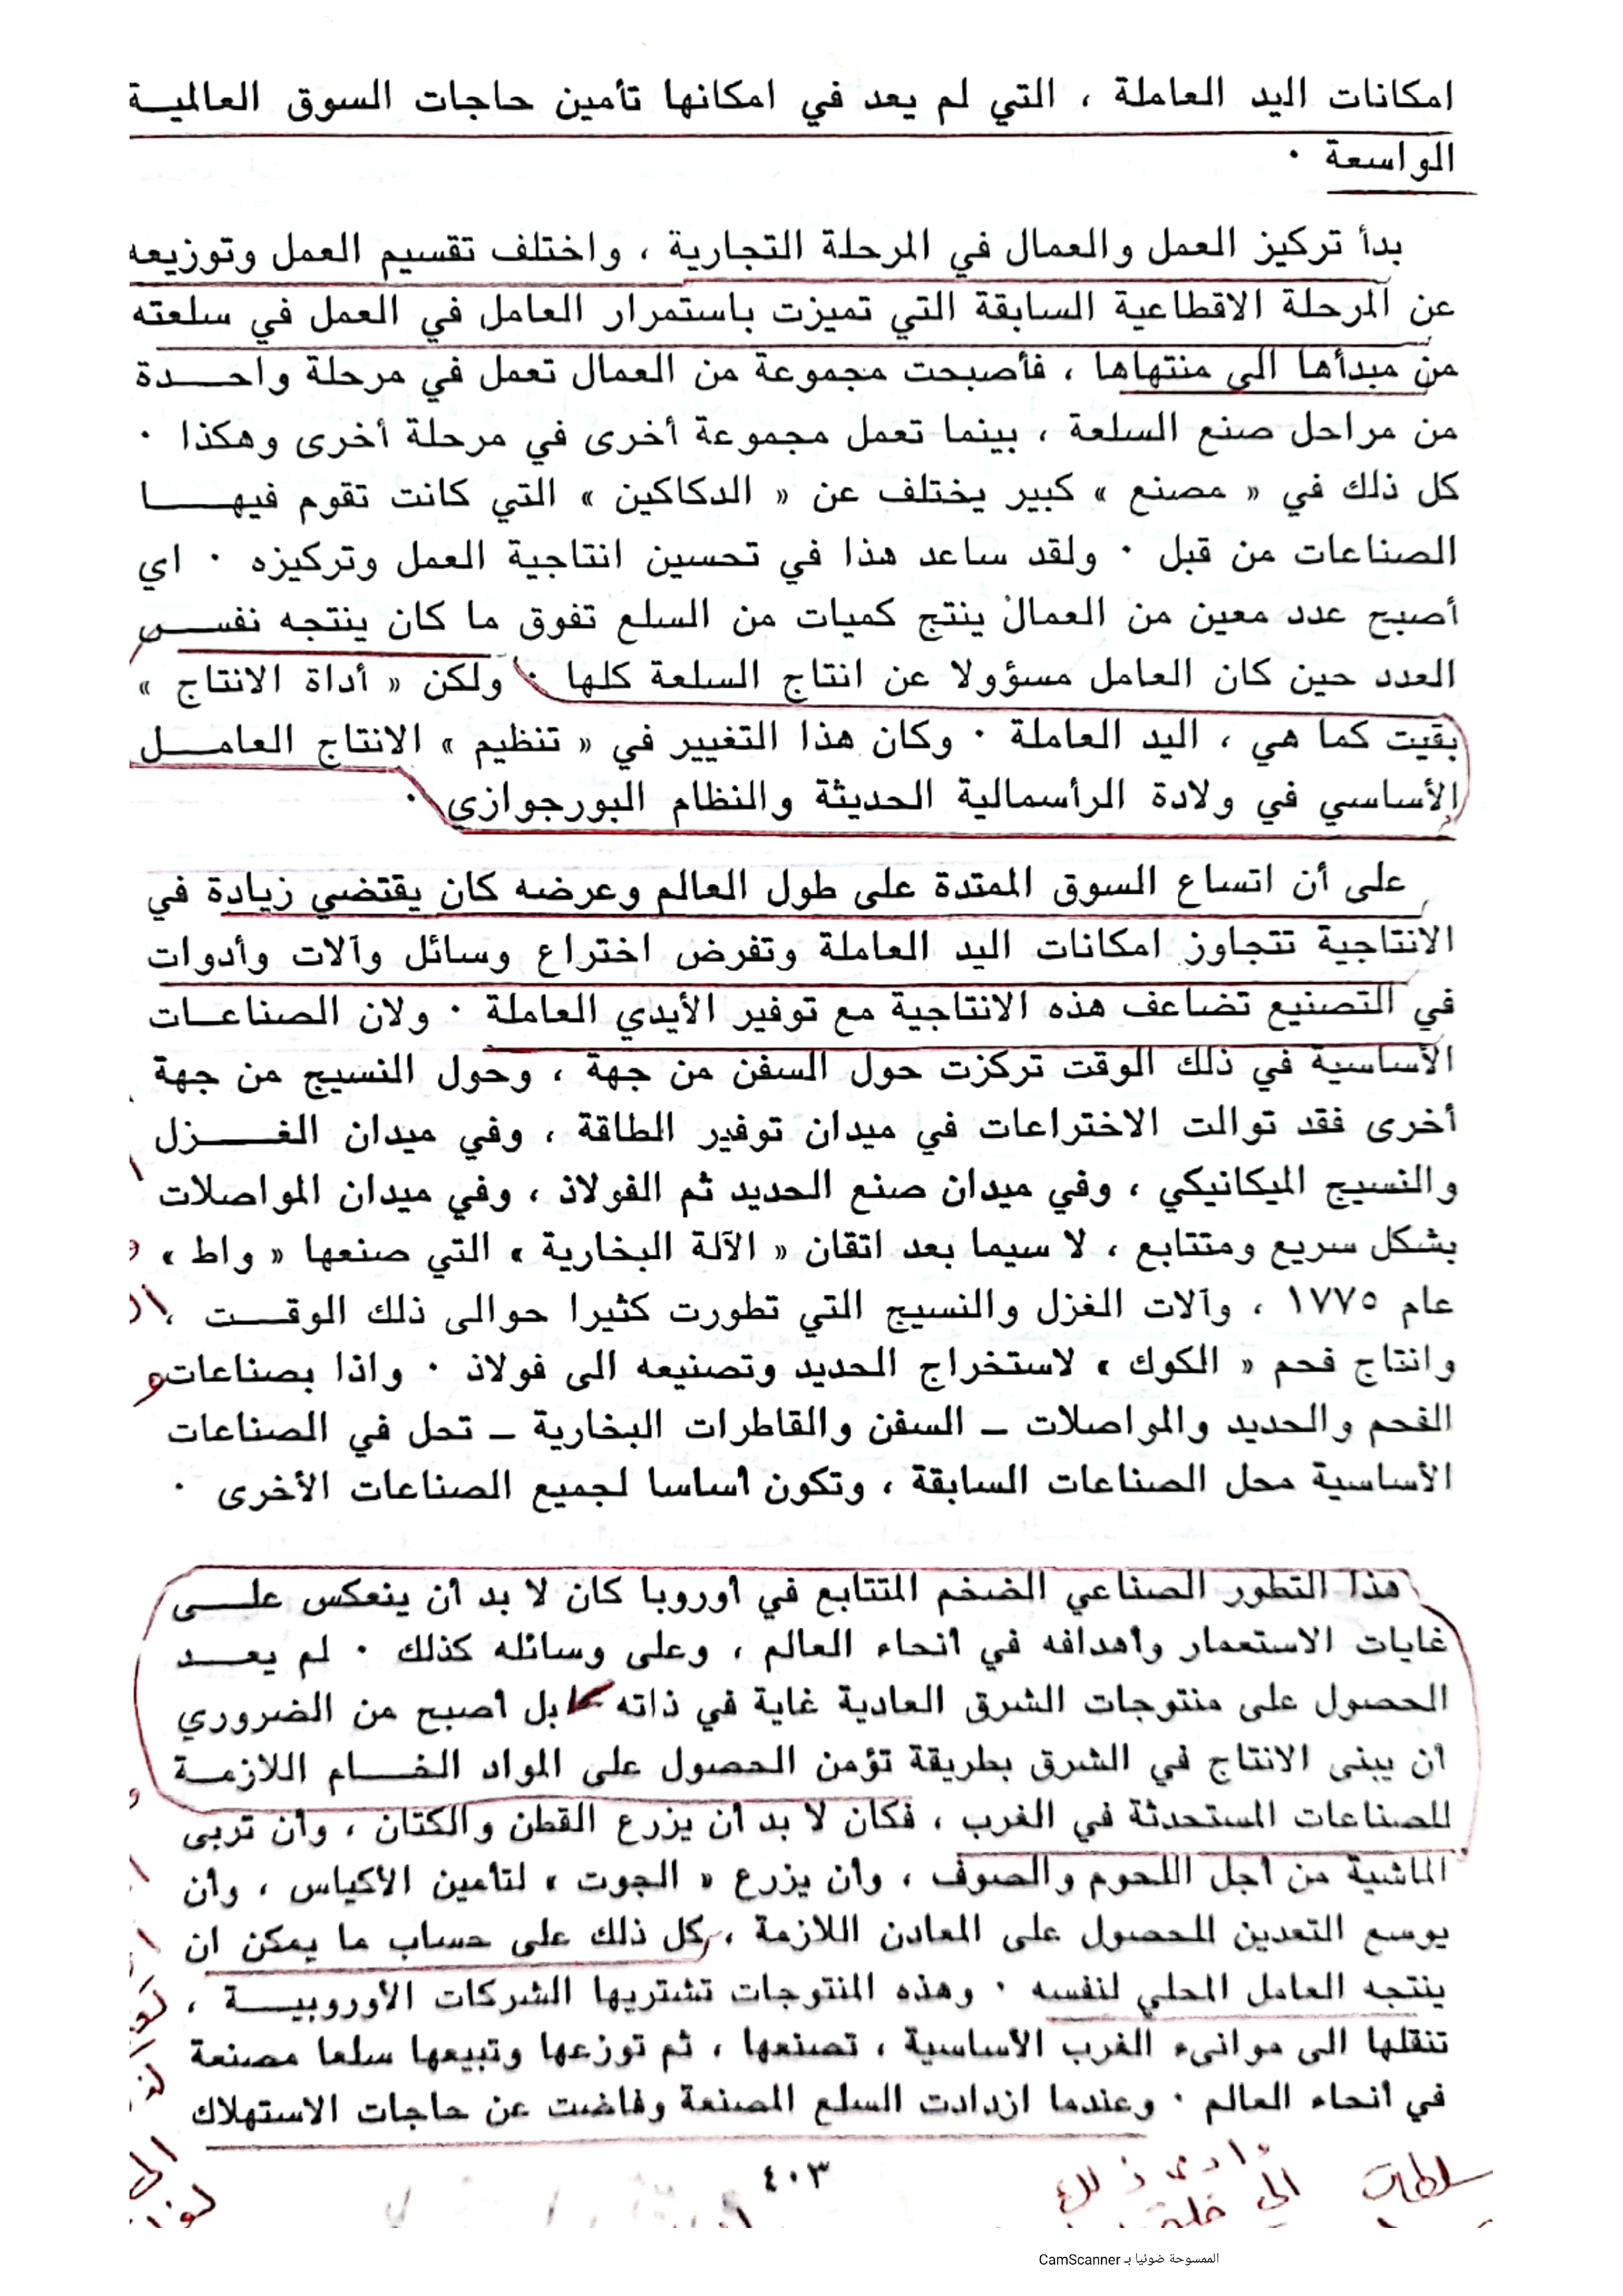 امكانات اليد العاملة ، التي لم يعد في امكانها تأمين حاجات السوق العالميـة
الواسعة ٠
بدأ تركيز العمل والعمال في المرحلة التجارية ، واختلف تقسيم العمل وتوزيعه
عن المرحلة الاقطاعية السابقة التي تميزت باستمرار العامل في العمل في سلعته
من مبدأها الى منتهاها ، فأصبحت مجموعة من العمال تعمل في مرحلة واحـــدة
من مراحل صنع السلعة ، بينما تعمل مجموعة أخرى في مرحلة أخرى وهكذا ٠
كل ذلك في « مصنع » كبير يختلف عن « الدكاكين » التي كانت تقوم فيهـــا
الصناعات من قبل ٠ ولقد ساعد هذا في تحسين انتاجية العمل وتركيزه ٠ اي
أصبح عدد معين من العمال ينتج كميات من السلع تفوق ما كان ينتجه نفســـ
العدد حين كان العامل مسؤولا عن انتاج السلعة كلها ٠ ولكن « أداة الانتاج »
بقيت كما هي ، اليد العاملة ٠ وكان هذا التغيير في « تنظيم » الانتاج العامـــل
الأساسي في ولادة الرأسمالية الحديثة والنظام البورجوازي ٠
على أن اتساع السوق الممتدة على طول العالم وعرضه كان يقتضي زيادة في
الانتاجية تتجاوز امكانات اليد العاملة وتفرض اختراع وسائل وآلات وأدوات
في التصنيع تضاعف هذه الانتاجية مع توفير الأيدي العاملة ٠ ولان الصناعـات
الأساسية في ذلك الوقت تركزت حول السفن من جهة ، وحول النسيج من جهة
أخرى فقد توالت الاختراعات في ميدان توفير الطاقة ، وفي ميدان الغـــزل
والنسيج الميكانيكي ، وفي ميدان صنع الحديد ثم الفولاذ ، وفي ميدان المواصلات
بشكل سريع ومتتابع ، لا سيما بعد اتقان « الآلة البخارية » التي صنعها « واط »
عام ١٧٧٥ ، وآلات الغزل والنسيج التي تطورت كثيرا حوالى ذلك الوقـــت ،
وانتاج فحم « الكوك » لاستخراج الحديد وتصنيعه الى فولاذ ٠ واذا بصناعات
الفحم والحديد والمواصلات ــ السفن والقاطرات البخارية ــ تحل في الصناعات
الأساسية محل الصناعات السابقة ، وتكون أساسا لجميع الصناعات الأخرى ٠
هذا التطور الصناعي الضخم المتتابع في أوروبا كان لا بد أن ينعكس علـــى
غايات الاستعمار وأهدافه في أنحاء العالم ، وعلى وسائله كذلك ٠ لم يعـــد
الحصول على منتوجات الشرق العادية غاية في ذاته بل أصبح من الضروري
أن يبنى الانتاج في الشرق بطريقة تؤمن الحصول على المواد الخـــام اللازمـة
للصناعات المستحدثة في الغرب ، فكان لا بد أن يزرع القطن والكتان ، وأن تربى
الماشية من أجل اللحوم والصوف ، وأن يزرع « الجوت » لتأمين الأكياس ، وأن
يوسع التعدين للحصول على المعادن اللازمة ، كل ذلك على حساب ما يمكن ان
ينتجه العامل المحلي لنفسه ٠ وهذه المنتوجات تشتريها الشركات الأوروبيـــة ،
تنقلها الى موانىء الغرب الأساسية ، تصنعها ، ثم توزعها وتبيعها سلعا مصنعة
في أنحاء العالم ٠ وعندما ازدادت السلع المصنعة وفاضت عن حاجات الاستهلاك
٤٠٣
الممسوحة ضوئيا بـ CamScanner